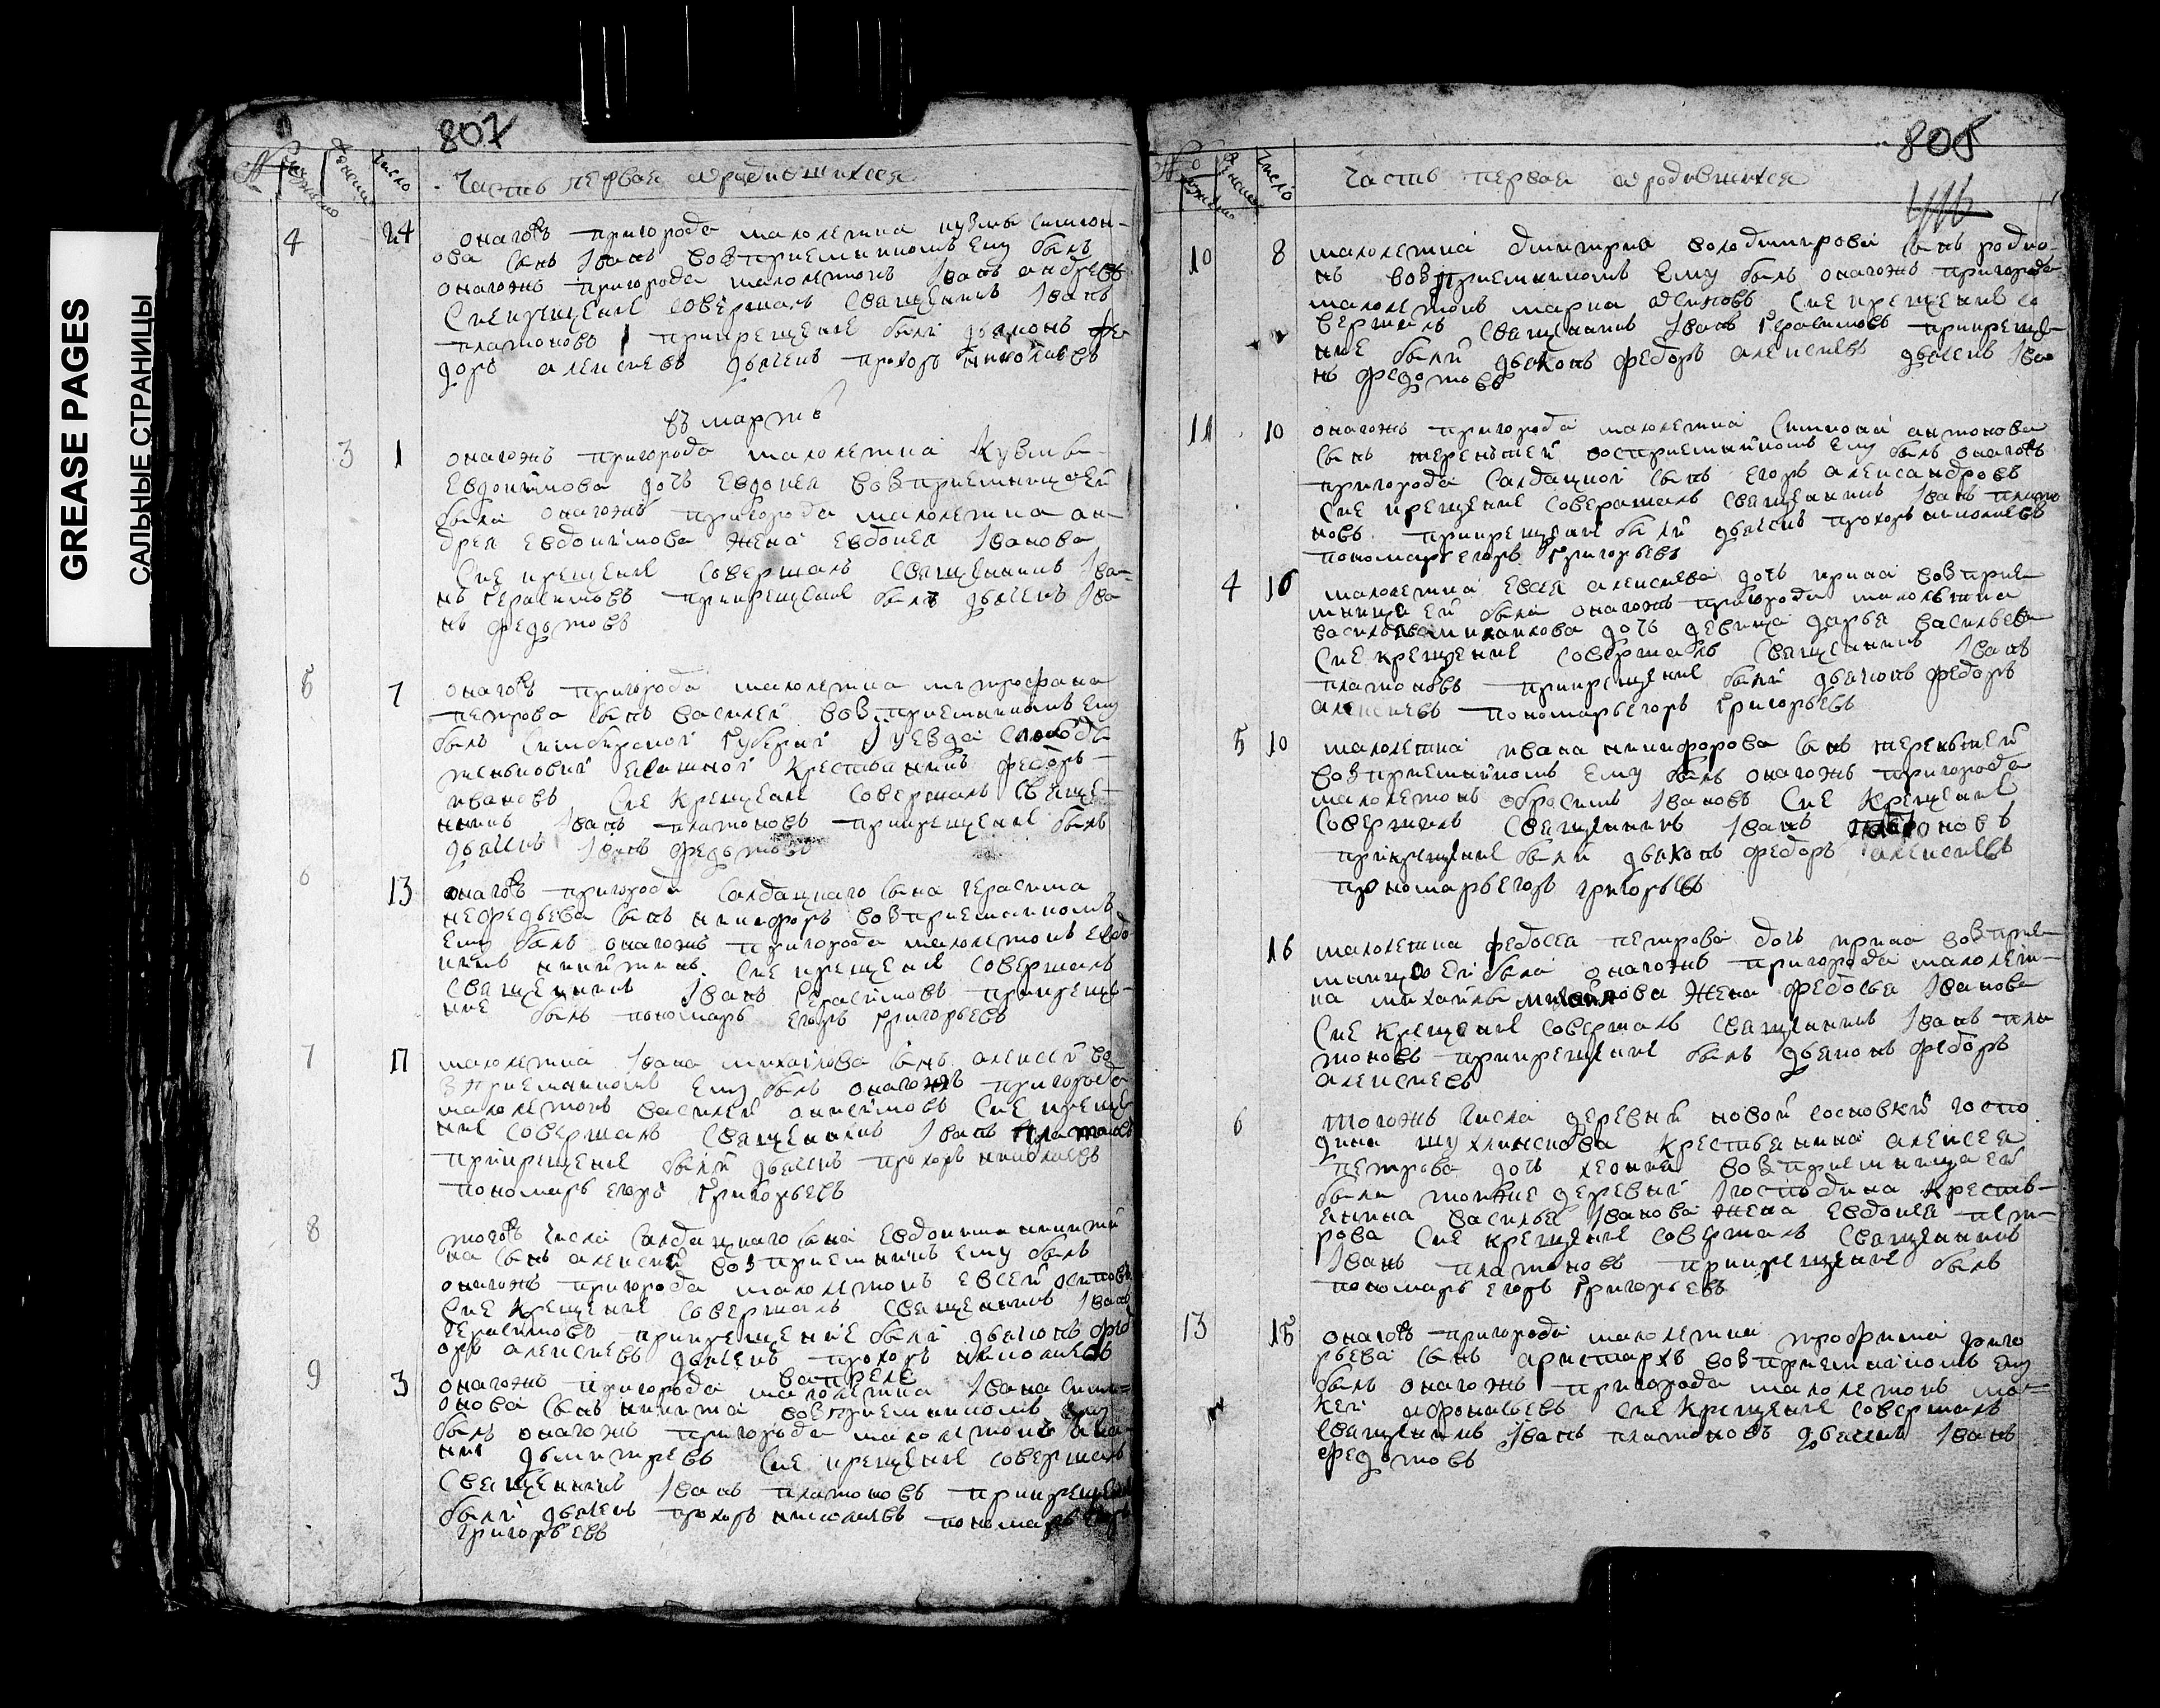 GREASE PAGES
САЛЬНЫЕ СТРАНИЦЫ
807
№ мужеска женска число
Часть первая о родившихся
4 24 онагожъ пригорода малолетка кузмы симон-
ова сынъ Iванъ возприемникомъ ему былъ
онагожъ пригорода малолетокъ Iванъ андревъ
Сие крещение совершалъ Священникъ Iванъ
платоновъ прикрещение были дьяконъ фе
доръ алексиевъ дьячекъ прохоръ николаевъ
въ марте
3 1 онагожъ пригорода малолетка Кузмы
Евдокимова дочь Евдокея возприемницаей
была онагожъ пригорода малолетка ан-
дрея Евдокимова жена Евдокея Iванова
Сие крещение совершалъ Священникъ Iва-
нъ герасимовъ прикрещение былъ дьячекъ Iва
нъ федотовъ
5 7 онагожъ пригорода малолетка митрофана
петрова сынъ василей возприемникомъ ему
былъ Симбирской губернии уезда слободы
ясашной крестьянинъ федоръ
ивановъ Сие крещение совершалъ Свяще-
нникъ Iванъ платоновъ прикрещение былъ
дьячекъ Iванъ федотовъ
6 13 онагожъ пригорода Салдацкаго сына герасима
нефедьева сынъ никифоръ возприемникомъ
ему былъ онагожъ пригорода малолетокъ евдо
кимъ никитинъ Сие крещение совершалъ
Священникъ Iванъ герасимовъ прикреще-
ние былъ пономарь егоръ григорьевъ
7 17 малолетка Iвана михайлова сынъ алексей во
зприемникомъ ему былъ онагожъ пригорода
малолетокъ василей анисимовъ Сие креще
ние совершалъ Священникъ Iванъ платоновъ
прикрещение были дьячекъ прохоръ николаевъ
пономарь егоръ григорьевъ
8 тогожъ числа Салдацкаго сына Евдокима никити
на сынъ алексей возприемникъ ему былъ
онагожъ пригорода малолетокъ евсей осиповъ
Сие крещение совершалъ Священникъ Iванъ
герасимовъ прикрещение были дьяконъ фед
оръ алексиевъ дьячекъ прохоръ николаевъ
вапреле
9 3 онагожъ пригорода малолетка Iвана Сими-
онова сынъ никита возприемникомъ ему
былъ онагожъ пригорода малолетокъ
дьмитревъ Сие крещение совершалъ
Священникъ Iванъ платоновъ прикрещение
были дьячекъ прохоръ николаевъ пономарь егоръ
григорьевъ
808
№ мужеска женска число
Часть первая о родившихся
10 8 малолетка дмитрия володимирова сынъ родио-
нъ возприемникомъ ему былъ онагожъ пригорода
малолетокъ марка осиповъ Сие крещение со
вершалъ Священникъ Iванъ герасимовъ прикреще-
ние были дьяконъ федоръ алексиевъ дьячекъ Iва
нъ федотовъ
11 10 онагожъ пригорода малолетка Симиона антонова
сынъ терентей восприемникомъ ему былъ онагожъ
пригорода Салдацкой сынъ Егоръ александровъ
Сие крещение совершалъ Священникъ Iванъ плато
новъ прикрещении были дьячекъ прохоръ николаевъ
пономарь егоръ григорьевъ
4 10 малолетка Евсея алексиева дочь ирина возприе-
мница ей была онагожъ пригорода малолетка
василья михаилова дочь девица дарья васильева
Сие крещение совершалъ Священникъ Iванъ
платоновъ прикрещение были дьяконъ федоръ
алексиевъ пономарьегоръ григорьевъ
5 10 малолетка ивана никифорова сынъ терентей
возприемникомъ ему былъ онагожъ пригорода
малолетокъ обросимъ Iвановъ Сие крещение
Совершалъ Священникъ Iванъ платоновъ
прикрещение были дьяконъ федоръ алексиевъ
пономарьегоръ григорьевъ
16 малолетка федосея петрова дочь ирина возприе-
мницаей была онагожъ пригорода малолет-
ка михайлы михайлова жена федосья Iванова
Сие крещение совершалъ Священникъ Iванъ пла
тоновъ прикрещение былъ дьяконъ федоръ
алексиевъ
6 тогожъ числа деревни новой сосновки госпо
дина крестьянина алексея
петрова дочь возприемница ей
была тойже деревни господина кресть-
янина василья Iванова жена Евдокея пет-
рова Сие крещение совершалъ Священникъ
Iванъ платоновъ прикрещение былъ
пономарь егоръ григорьевъ
13 18 онагожъ пригорода малолетка трофима григо
рьева сынъ аристархъ возприемникомъ ему
былъ онагожъ пригорода малолетокъ мо-
кей афонасьевъ Сие крещение совершалъ
Священникъ Iванъ платоновъ дьячекъ Iванъ
федотовъ